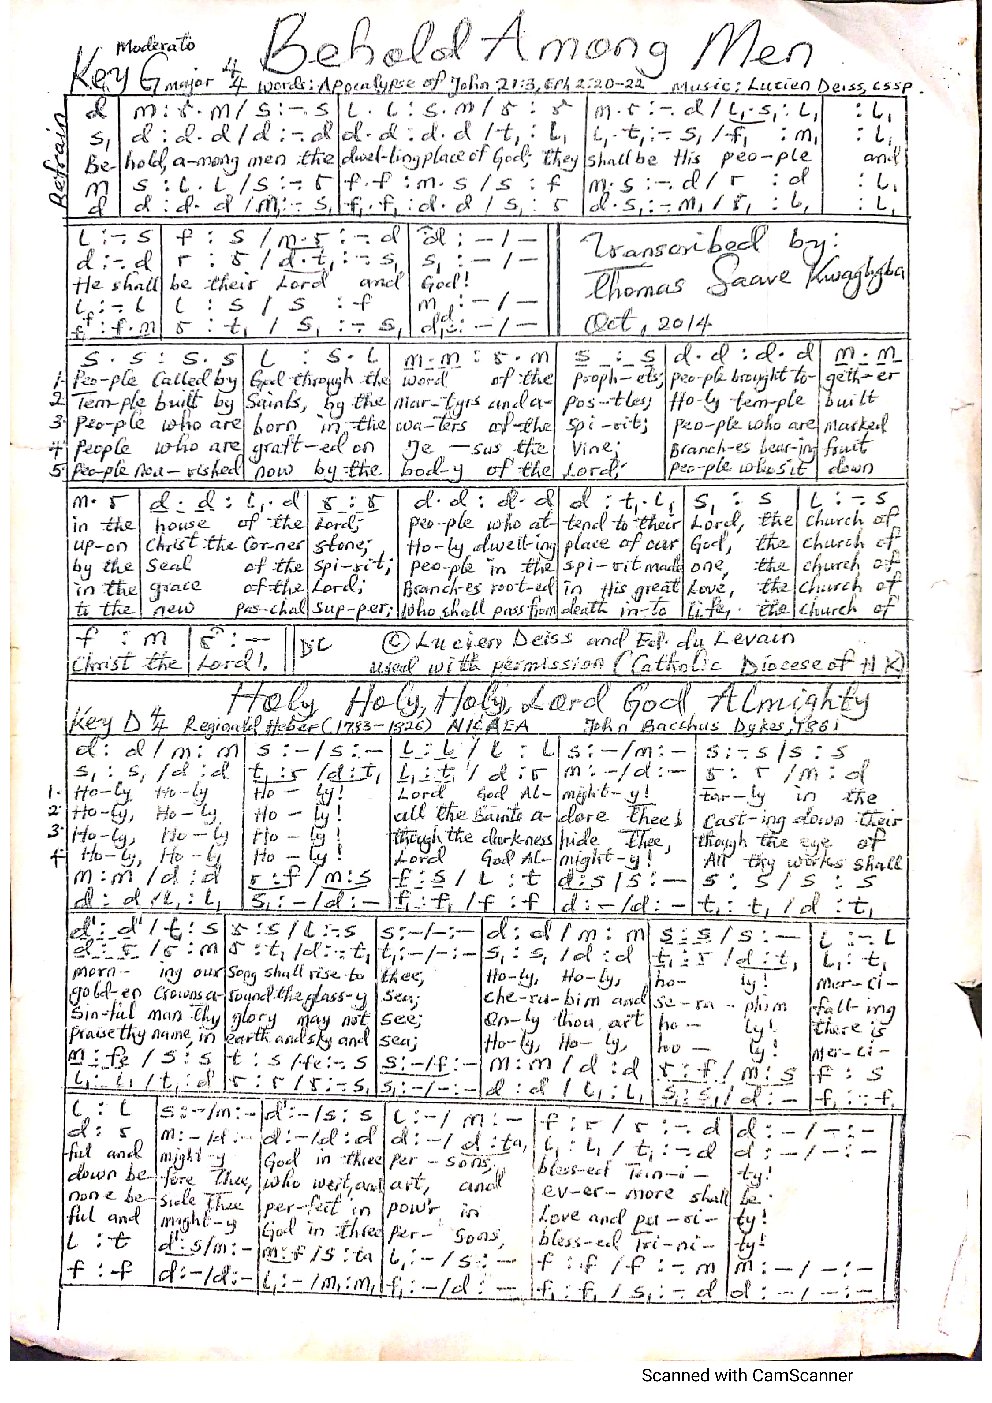 Behold Among Men
Moderato
Key G major 4/4 Words: Apocalypse of John 21:3, Eph 2:20-22 Music: Lucien Deiss, CSSP.
Refrain
d | m : r . m / s : - . s | l . l : s . m / r : r | m . r : - . d / l₁ . s₁ : l₁ | : l₁
s₁ | d : d . d / d : - . d | d . d : d . d / t₁ : l₁ | l₁ . t₁ : - . s₁ / f₁ : m₁ | : l₁
Be- hold, a-mong men the dwel-ling place of God; they shall be His peo-ple and
m | s : l . l / s : - . r | f . f : m . s / s : f | m . s : - . d / r : d | : l₁
d | d : d . d / m₁ : - . s₁ | f₁ . f₁ : d . d / s₁ : r | d . s₁ : - . m₁ / r₁ : l₁ | : l₁
l : - . s | f : s / m . r : - . d | d : - / -
d : - . d | r : r / d . t₁ : - . s₁ | s₁ : - / -
He shall be their Lord and God!
l₁ : - . l | l : s / s : f | m : - / -
f : f . m | r : t₁ / s₁ : - . s₁ | d : - / -
Transcribed by:
Thomas Saave Kwaghgba
Oct, 2014
s . s : s . s | l : s . l | m . m : r . m | s : s | d . d : d . d | m . m
1. Peo-ple called by God through the word of the proph-ets; peo-ple brought to- geth-er
2. Tem-ple built by Saints, by the mar-tyrs and a- pos-tles; Ho-ly tem-ple built
3. People who are born in the wa-ters of the spi-rit; peo-ple who are marked
4. People who are graft-ed on Je — sus the Vine; Branch-es bear-ing fruit
5. People nou-rished now by the bod-y of the Lord; peo-ple who sit down
m . r | d . d : l₁ . d | r : r | d . d : d . d | d : t₁ . l₁ | s₁ : s | l : - . s
in the house of the Lord; peo-ple who at- tend to their Lord, the church of
up-on Christ the Cor-ner stone; Ho-ly dwell-ing place of our God, the church of
by the seal of the spi-rit; people in the spi-rit made one, the church of
in the grace of the Lord; Branch-es root-ed in His great Love, the church of
to the new pas-chal sup-per; Who shall pass from death in-to Life, the church of
f : m | r : - DC © Lucien Deiss and Ed. du Levain
Christ the Lord! used with permission (Catholic Diocese of H K)
Holy Holy, Holy, Lord God Almighty
Key D 4/4 Reginald Heber (1783-1826) NICAEA John Bacchus Dykes, 1861
d : d / m : m | s : - / s : - | l : l / l : l | s : - / m : - | s : - . s / s : s
s₁ : s₁ / d : d | t₁ : r / d : t₁ | l₁ : t₁ / d : r | m : - / d : - | r : r / m : d
1. Ho-ly Ho-ly Ho - ly! Lord God Al- might-y! Ear-ly in the
2. Ho-ly, Ho-ly, Ho - ly! all the Saints a- dore thee! cast-ing down their
3. Ho-ly, Ho-ly Ho - ly! though the dark-ness hide Thee, though the eye of
4. Ho-ly, Ho-ly Ho - ly! Lord God Al- might-y! All thy works shall
m : m / d : d | r : f / m : s | f : s / l : t | d : s / s : - | s : s / s : s
d : d / l₁ : l₁ | s₁ : - / d : - | f₁ : f₁ / f : f | d : - / d : - | t₁ : t₁ / d : t₁
d' : d' / t : s | r : s / l : - . s | s : - / - : - | d : d / m : m | s : s / s : - | l : - . l
d : r / r : m | r : t₁ / d : - . t₁ | t₁ : - / - : - | s₁ : s₁ / d : d | t₁ : r / d : t₁ | l₁ : t₁
morn- ing our Song shall rise to thee; Ho-ly, Ho-ly, ho- ly! Mer-ci-
gold-en crowns a- round the glass-y sea; che-ru-bim and se-ra-phim fall-ing
Sin-ful man thy glory may not see; On-ly thou art ho - ly! there is
praise thy name, in earth and sky and sea; Ho-ly, Ho-ly, ho - ly! Mer-ci-
m : fe / s : s | t : s / fe : - . s | s : - / f : - | m : m / d : d | r : f / m : s | f : s
l₁ : l₁ / t₁ : d | r : r / r : - . s₁ | s₁ : - / - : - | d : d / l₁ : l₁ | s₁ : s₁ / d : - | f₁ : - . f₁
l : l | s : - / m : - | d' : - / s : s | l : - / m : - | f : r / r : - . d | d : - / - : -
d : r | m : - / d : - | d : - / d : d | d : - / d : ta₁ | l₁ : l₁ / t₁ : - . d | d : - / - : -
ful and might-y God in three per-sons, bless-ed Trin-i- ty!
down be- fore Thee, who wert, and art, and ev-er-more shall be.
none be- side Thee per-fect in pow'r in Love and pu-ri- ty!
ful and might-y God in three per-sons, bless-ed Tri-ni- ty!
l : t | d' : s / m : - | m : f / s : ta | l₁ : - / s : - | f : f / f : - . m | m : - / - : -
f : f | d : - / d : - | l₁ : - / m₁ : m₁ | f₁ : - / d : - | f₁ : f₁ / s₁ : - . d | d : - / - : -
Scanned with CamScanner